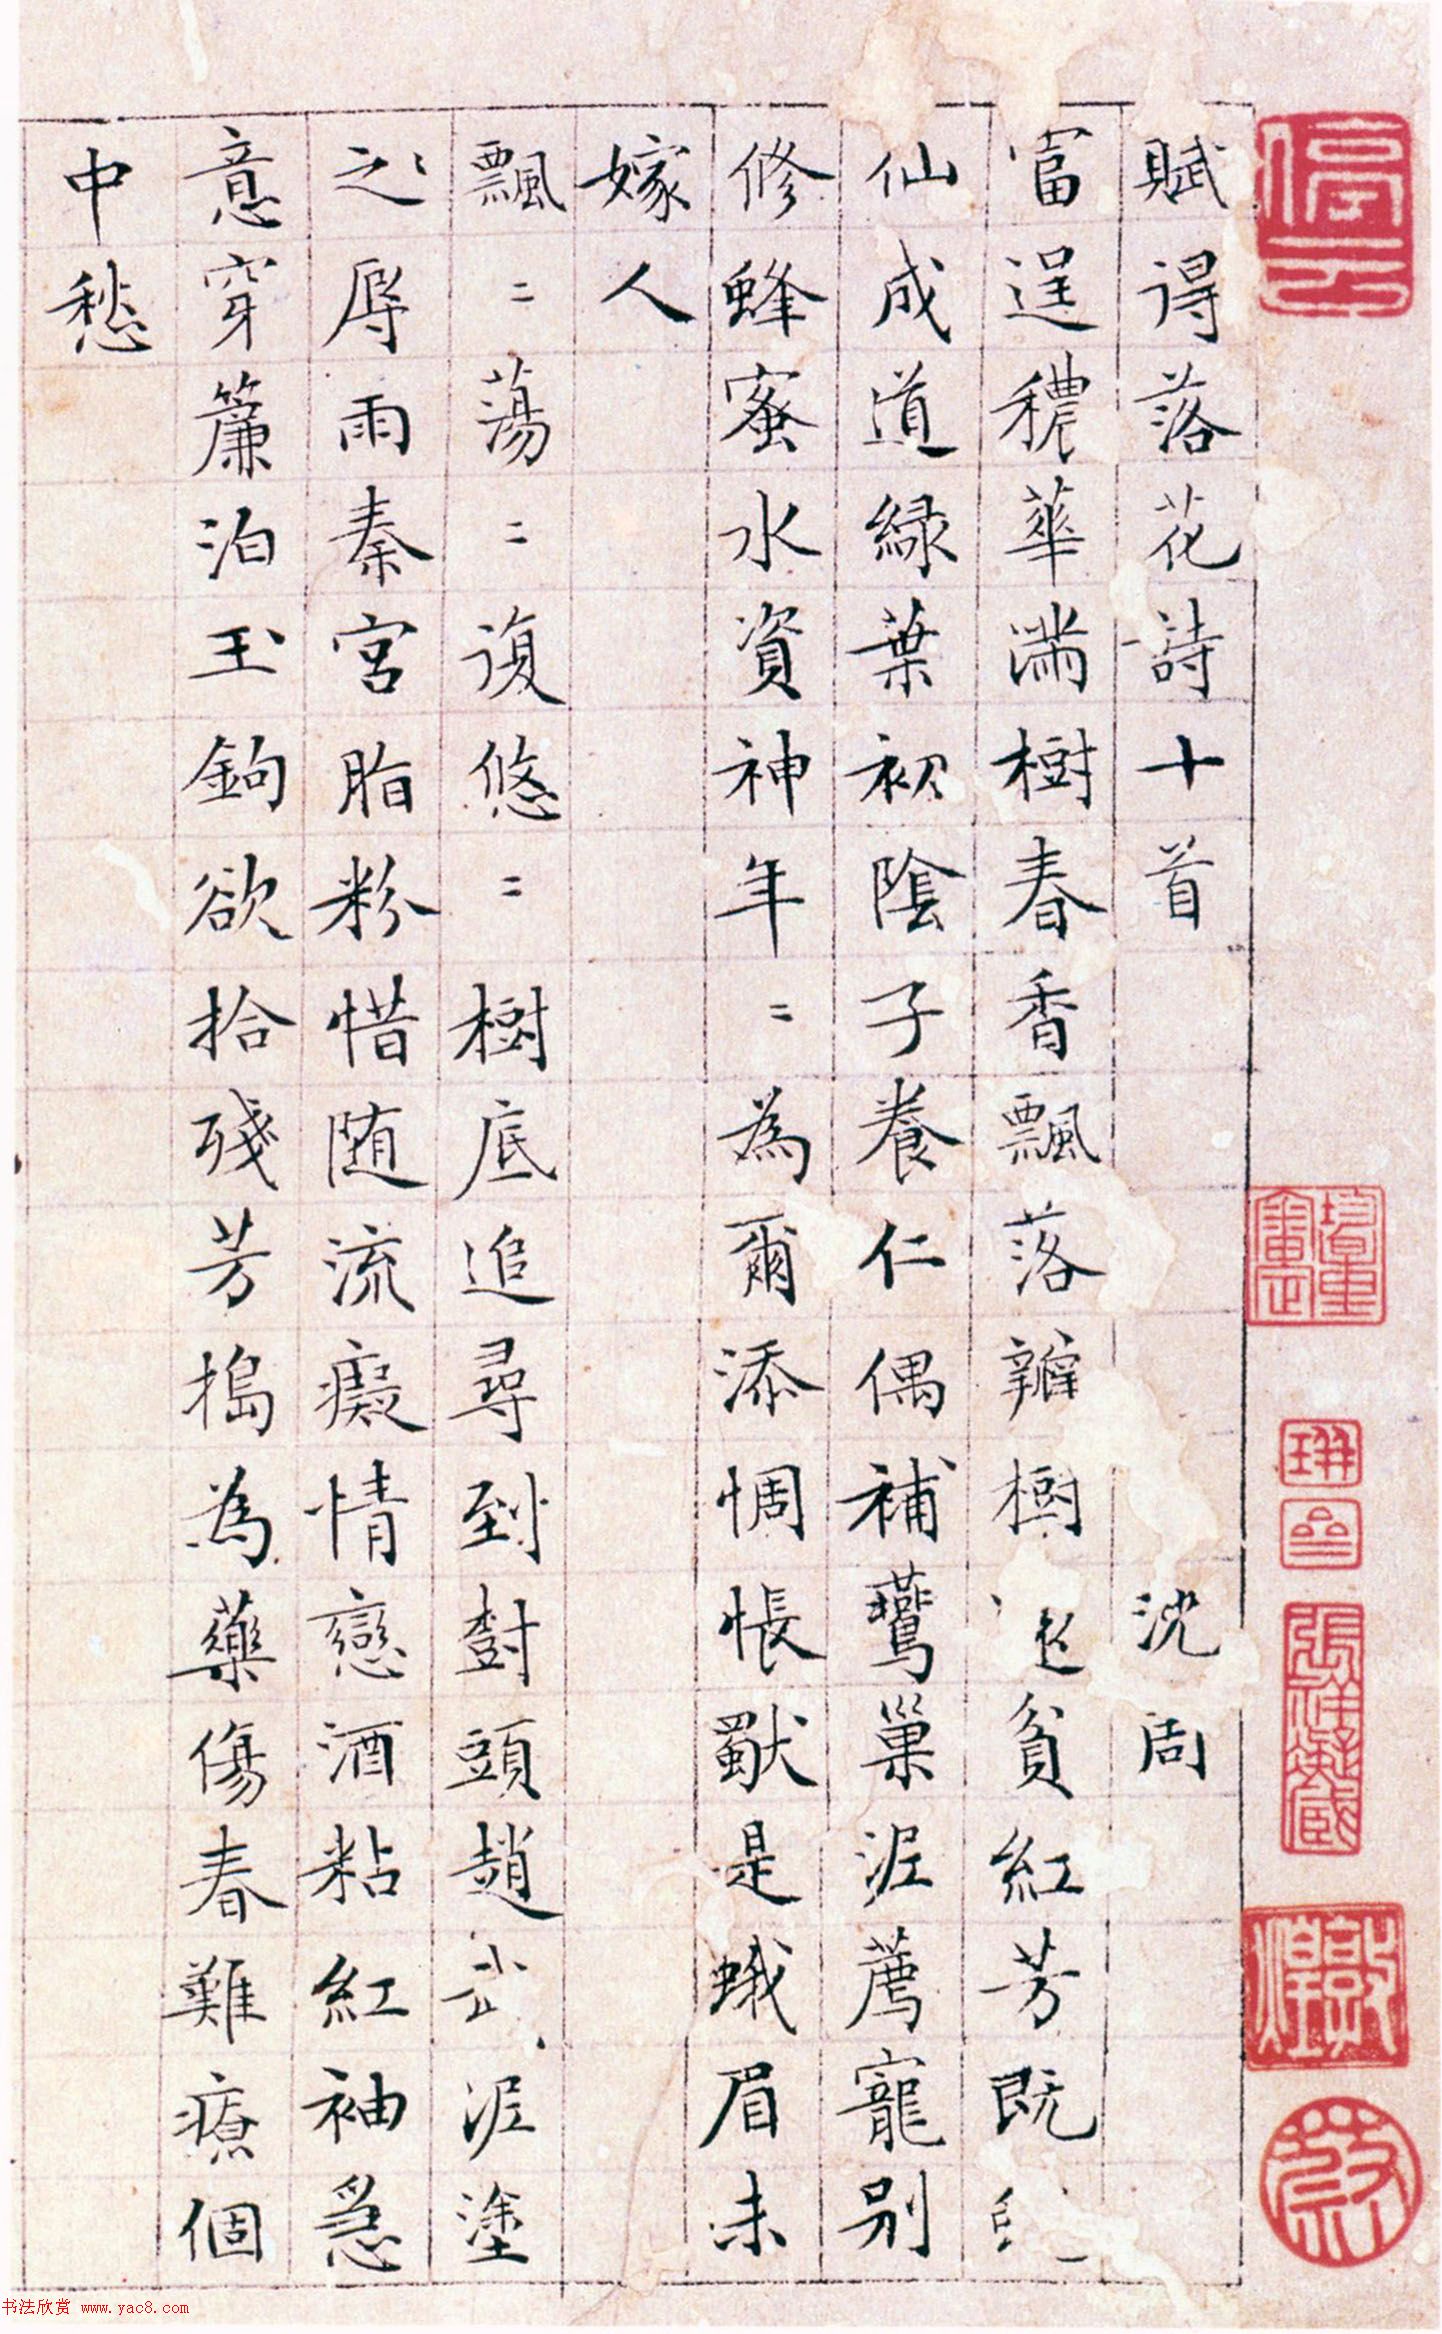 停雲
賦得落花詩十首 沈周
富逞穠華滿樹春香飄落瓣樹貧紅芳既
仙成道緑葉初陰子養仁偶補鷰巢泥薦寵別
修蜂蜜水資神年=為爾添惆悵獨是蛾眉未
嫁人
飄=蕩=復悠=樹底追尋到樹頭趙武泥塗
之辱雨秦宮脂粉惜随流癡情戀酒粘紅袖急
意穿簾泊玉鉤欲拾殘芳搗為藥傷春難療個
中愁
书法欣赏 www.yac8.com